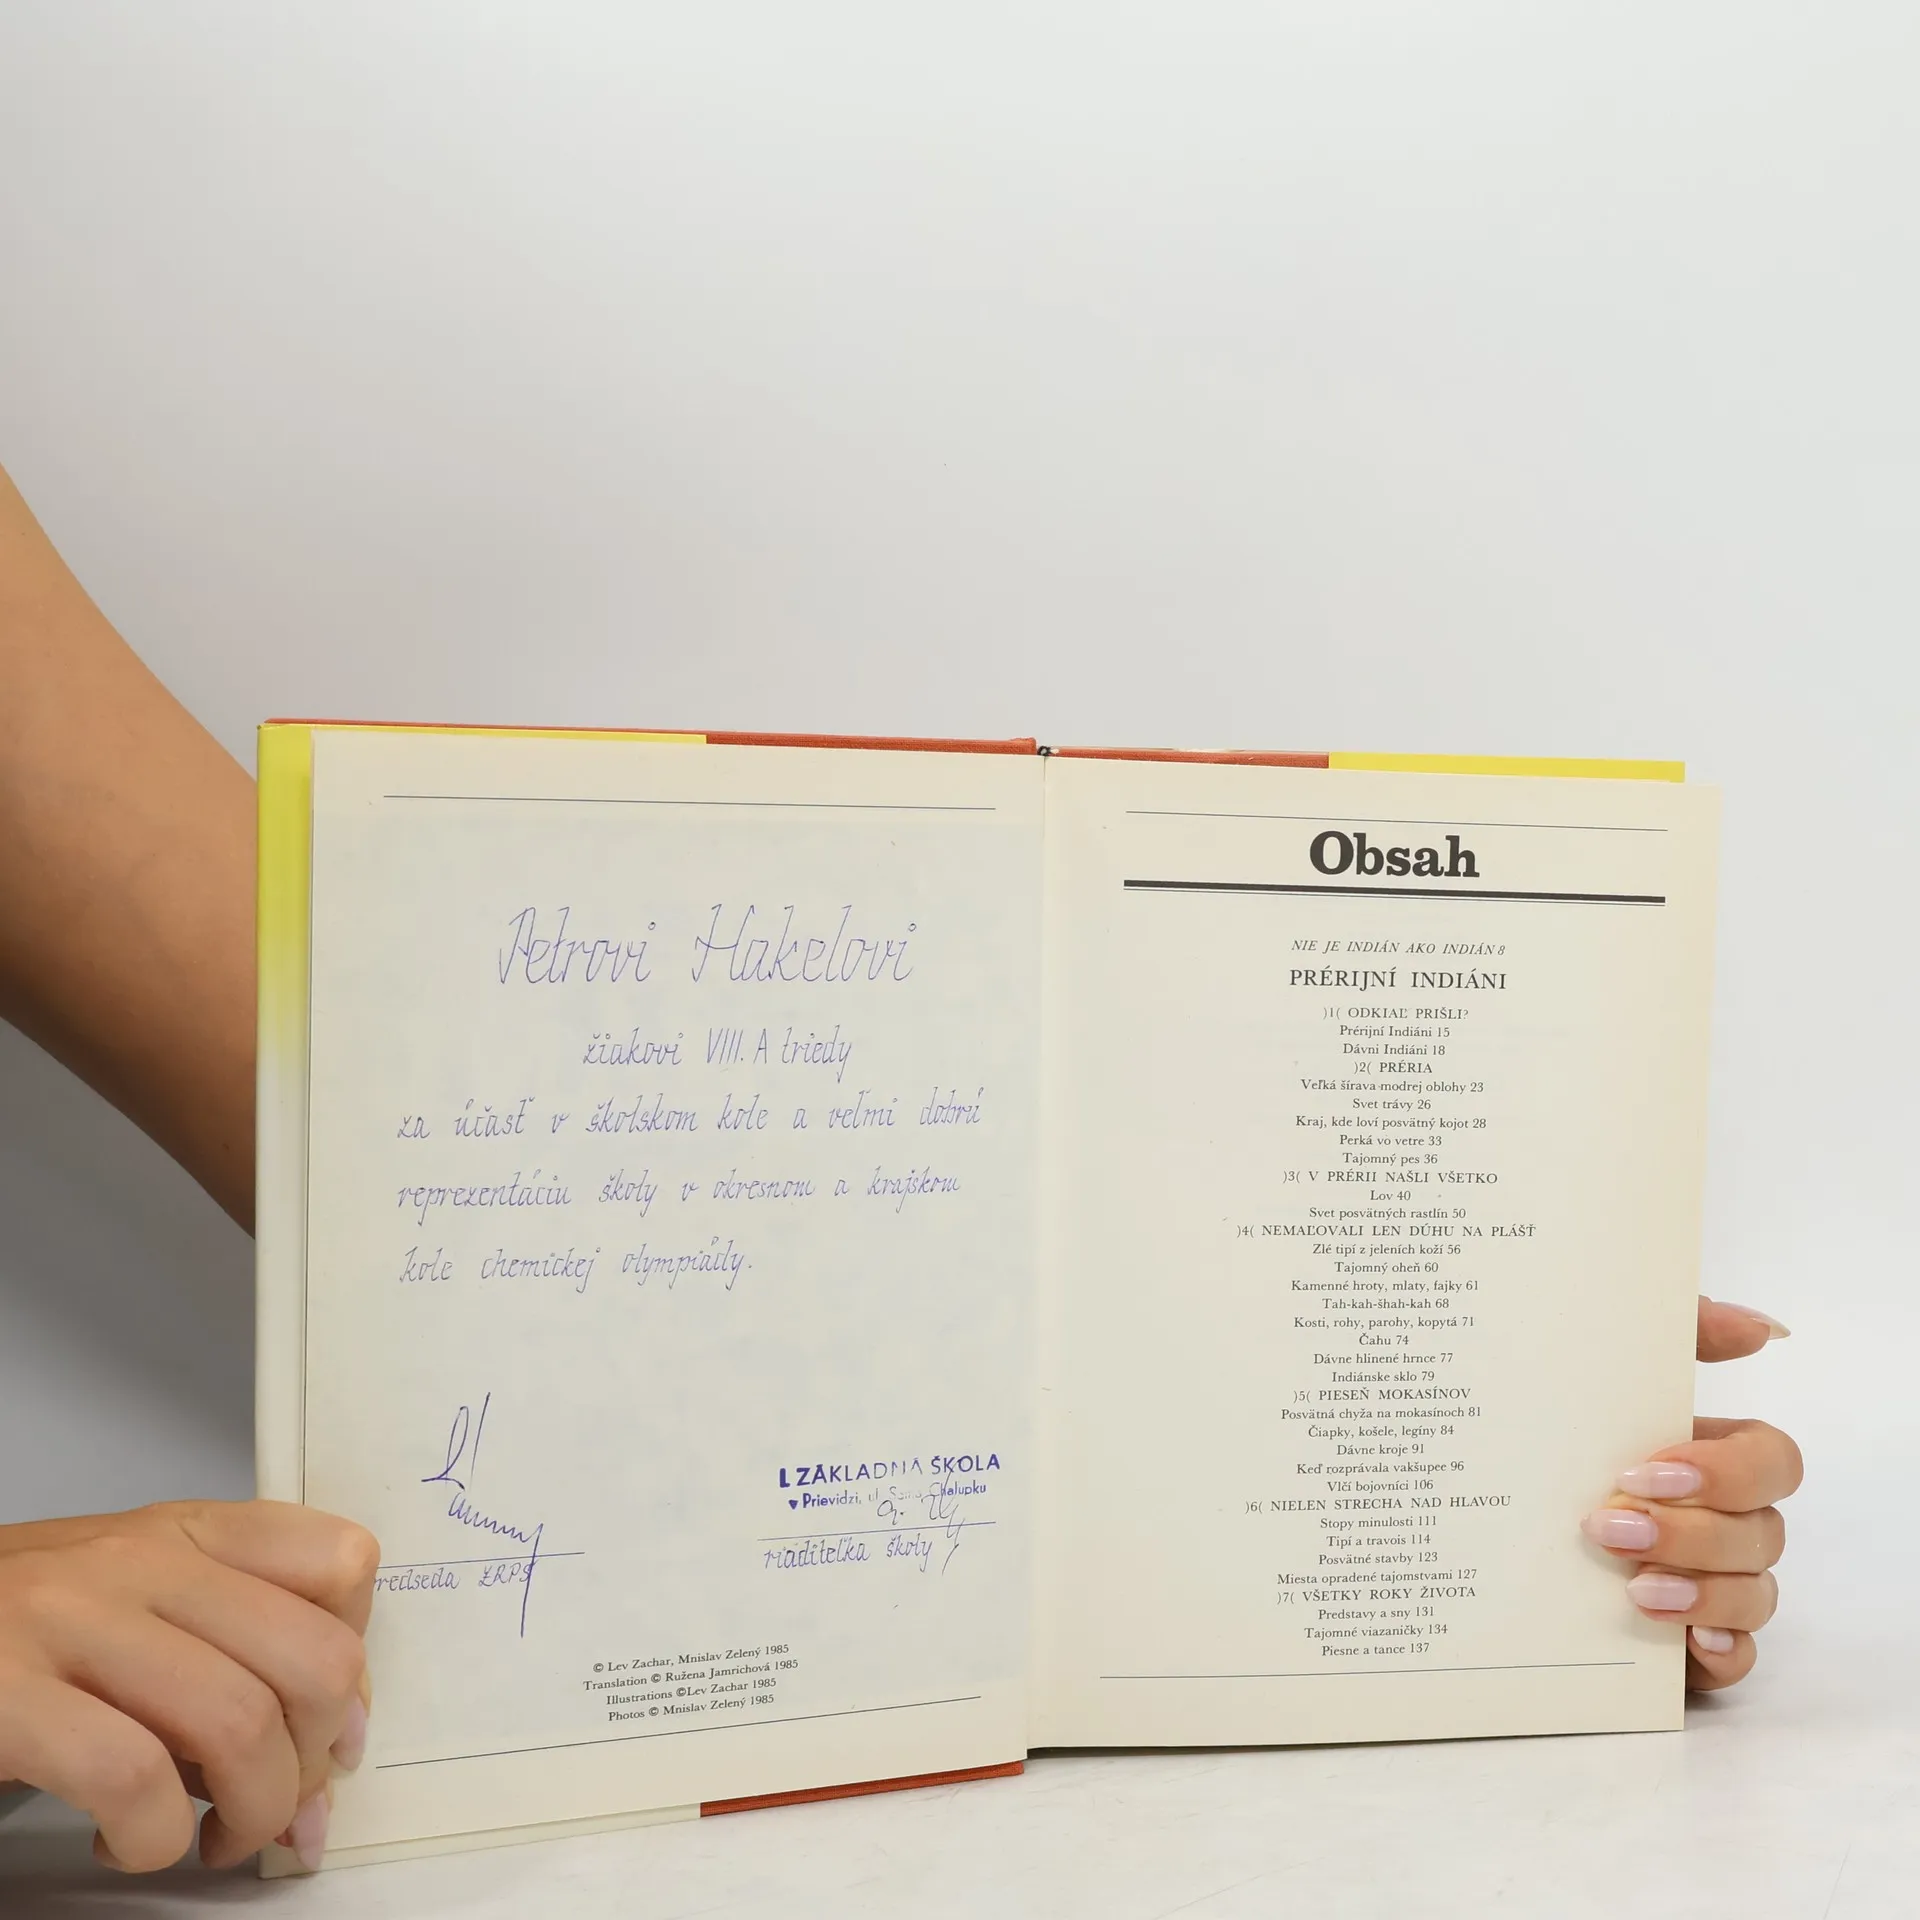 Petrovi Hakelovi
žiakovi VIII. A triedy
za účasť v školskom kole a veľmi dobrú
reprezentáciu školy v okresnom a krajskom
kole chemickej olympiády.
I. ZÁKLADNÁ ŠKOLA
v Prievidzi, ul. Sama Chalupku
redseda ZRPŠ
riaditeľka školy
© Lev Zachar, Mnislav Zelený 1985
Translation © Ružena Jamrichová 1985
Illustrations ©Lev Zachar 1985
Photos © Mnislav Zelený 1985
Obsah
NIE JE INDIÁN AKO INDIÁN 8
PRÉRIJNÍ INDIÁNI
)1( ODKIAĽ PRIŠLI?
Prérijní Indiáni 15
Dávni Indiáni 18
)2( PRÉRIA
Veľká šírava modrej oblohy 23
Svet trávy 26
Kraj, kde loví posvätný kojot 28
Perká vo vetre 33
Tajomný pes 36
)3( V PRÉRII NAŠLI VŠETKO
Lov 40
Svet posvätných rastlín 50
)4( NEMAĽOVALI LEN DÚHU NA PLÁŠŤ
Zlé tipí z jeleních koží 56
Tajomný oheň 60
Kamenné hroty, mlaty, fajky 61
Tah-kah-šhah-kah 68
Kosti, rohy, parohy, kopytá 71
Čahu 74
Dávne hlinené hrnce 77
Indiánske sklo 79
)5( PIESEŇ MOKASÍNOV
Posvätná chyža na mokasínoch 81
Čiapky, košele, legíny 84
Dávne kroje 91
Keď rozprávala vakšupee 96
Vlčí bojovníci 106
)6( NIELEN STRECHA NAD HLAVOU
Stopy minulosti 111
Tipí a travois 114
Posvätné stavby 123
Miesta opradené tajomstvami 127
)7( VŠETKY ROKY ŽIVOTA
Predstavy a sny 131
Tajomné viazaničky 134
Piesne a tance 137